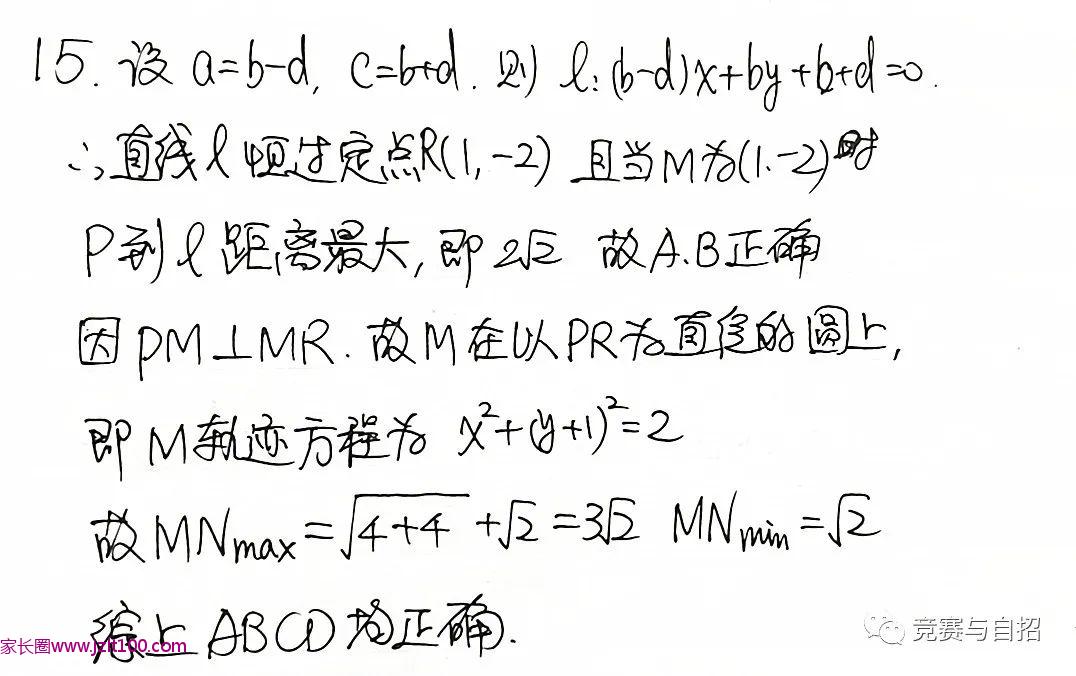 15. 设 a=b-d, c=b+d. 则 l: (b-d)x+by+b+d=0.
∴直线 l 恒过定点R(1,-2) 且当M为(1.-2)时
P到l距离最大,即 2√2 故A.B正确
因PM⊥MR.故M在以PR为直径的圆上,
即M轨迹方程为 x²+(y+1)²=2
故MNmax=√4+4+√2=3√2 MNmin=√2
综上ABCD均正确.
家长圈www.jzlt100.com
竞赛与自招